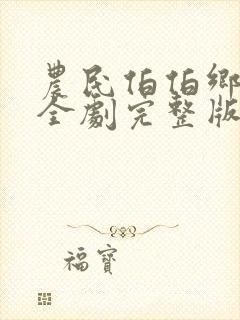 農民伯伯鄉
全劇完整版
福寶